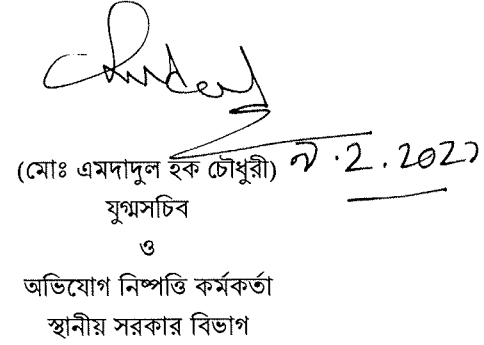 (মোঃ এমদাদুল হক চৌধুরী)
যুগ্মসচিব
ও
অভিযোগ নিষ্পত্তি কর্মকর্তা
স্থানীয় সরকার বিভাগ